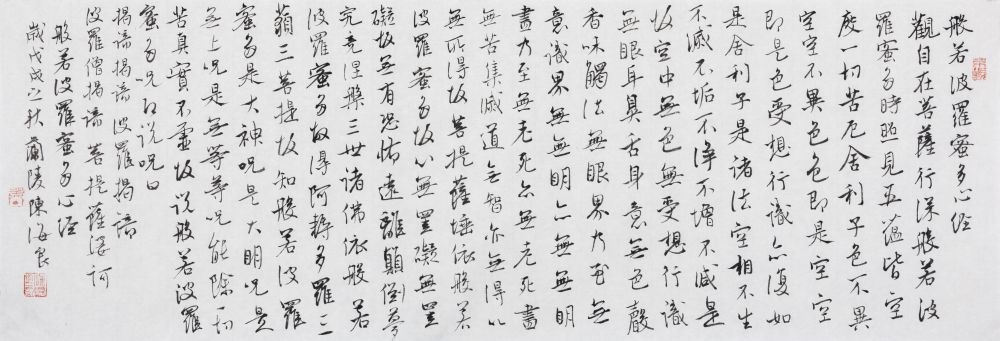 般若波羅蜜多心经
觀自在菩薩行深般若波
羅蜜多時照見五蕴皆空
度一切苦厄舍利子色不異
空空不異色色即是空空
即是色受想行識亦復如
是舍利子是诸法空相不生
不滅不垢不净不增不減是
故空中無色無受想行識
無眼耳鼻舌身意無色聲
香味觸法無眼界乃至無
意識界無無明亦無無明
盡乃至無老死亦無老死盡
無苦集滅道無智亦無得以
無所得故菩提薩埵依般若
波羅蜜多故心無罣礙無罣
礙故無有恐怖遠離顛倒夢
究竟涅槃三世诸佛依般若
波羅蜜多故得阿耨多羅三
藐三菩提故知般若波羅
蜜多是大神咒是大明咒是
無上咒是無等等咒能除一切
苦真實不虛故说般若波羅
蜜多咒即说咒曰
揭谛揭谛波羅揭谛
波羅僧揭谛菩提薩婆訶
般若波羅蜜多心经
歲戊戌之秋蘭陵陳海良